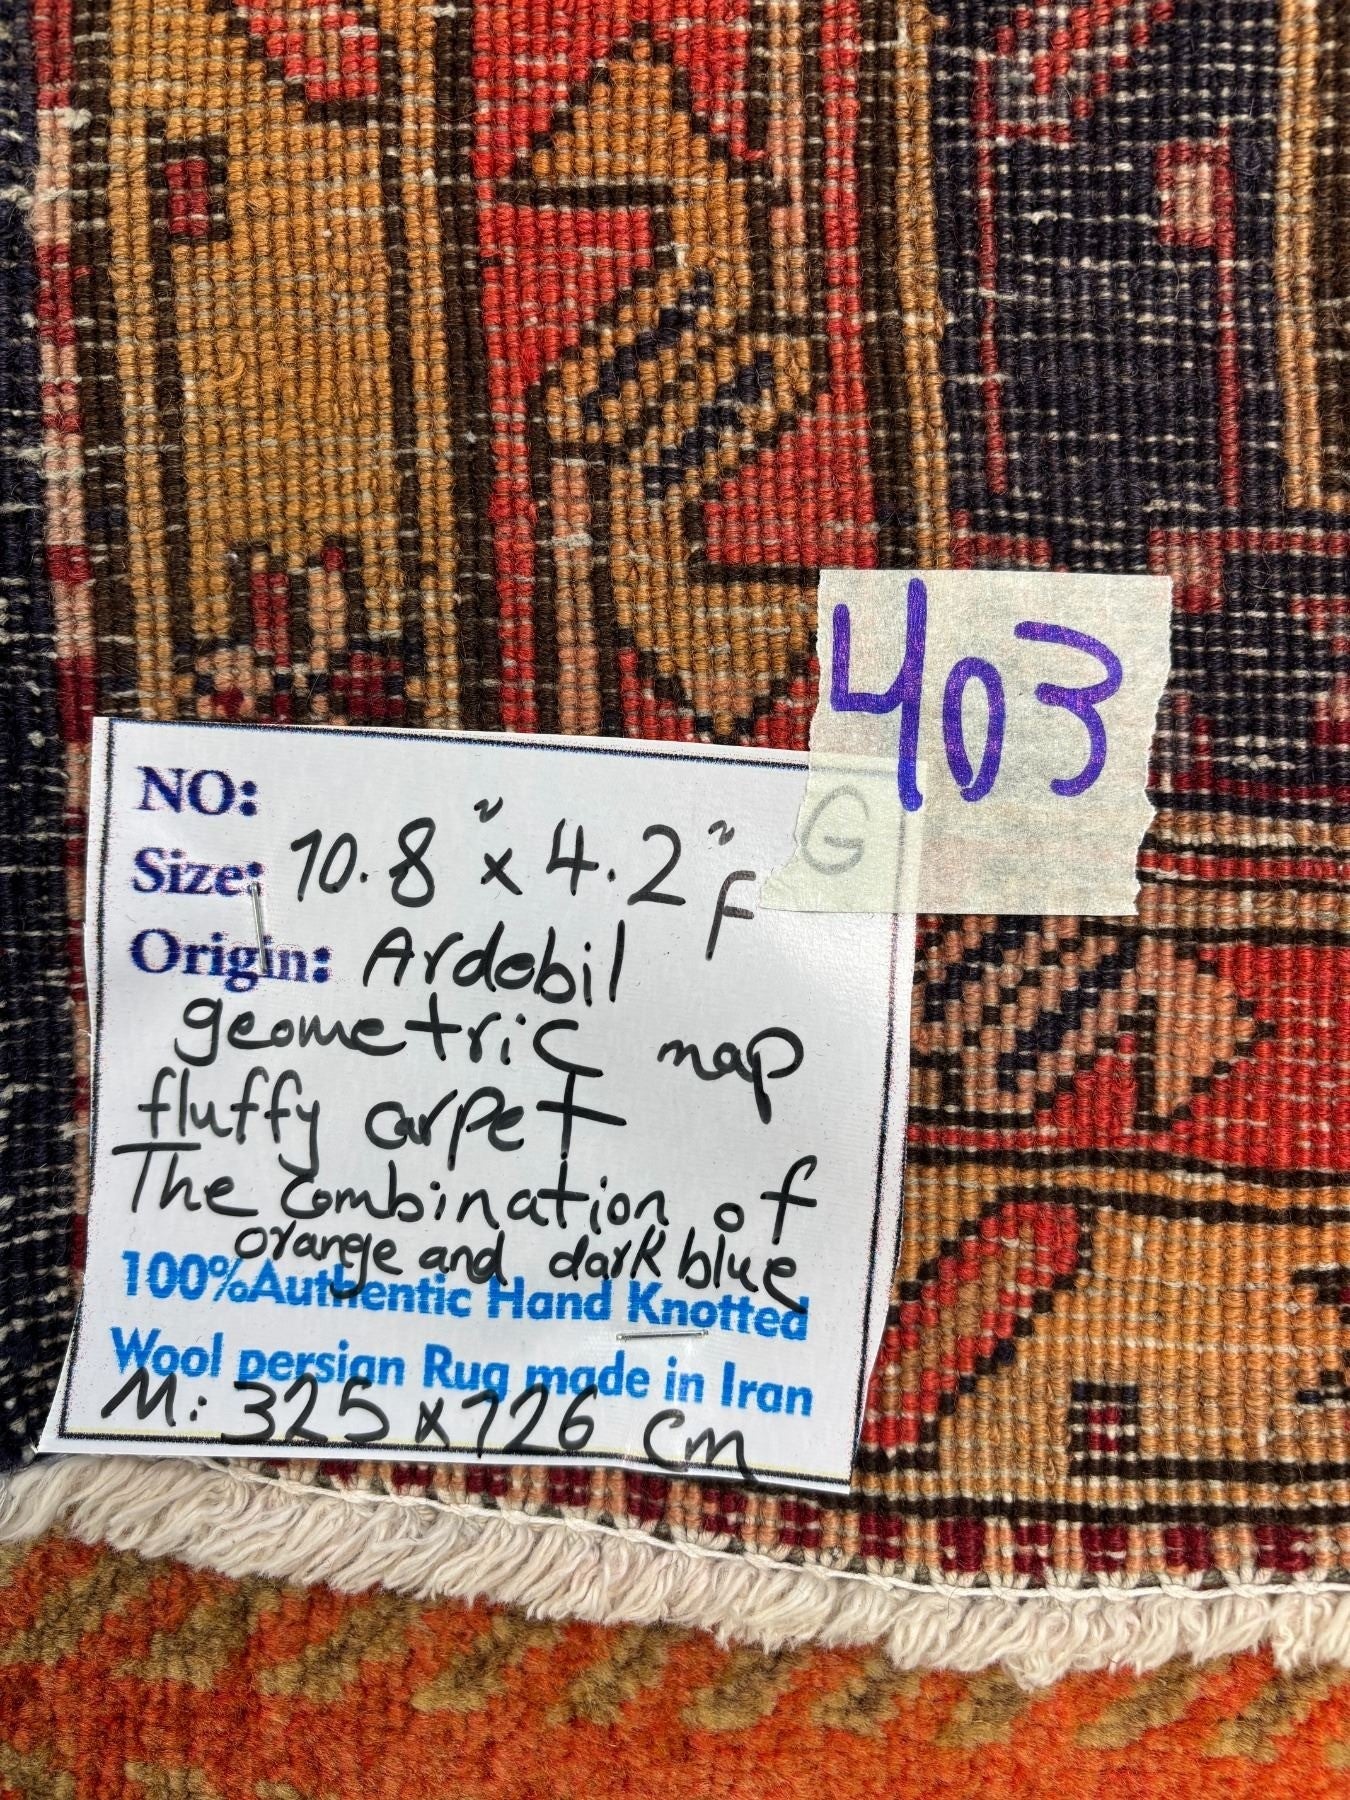 403
G
NO:
Size: 10.8" x 4.2" F
Origin: Ardobil
geometric map
fluffy carpet
The combination of
orange and dark blue
100%Authentic Hand Knotted
Wool persian Rug made in Iran
M: 325 x 126 cm